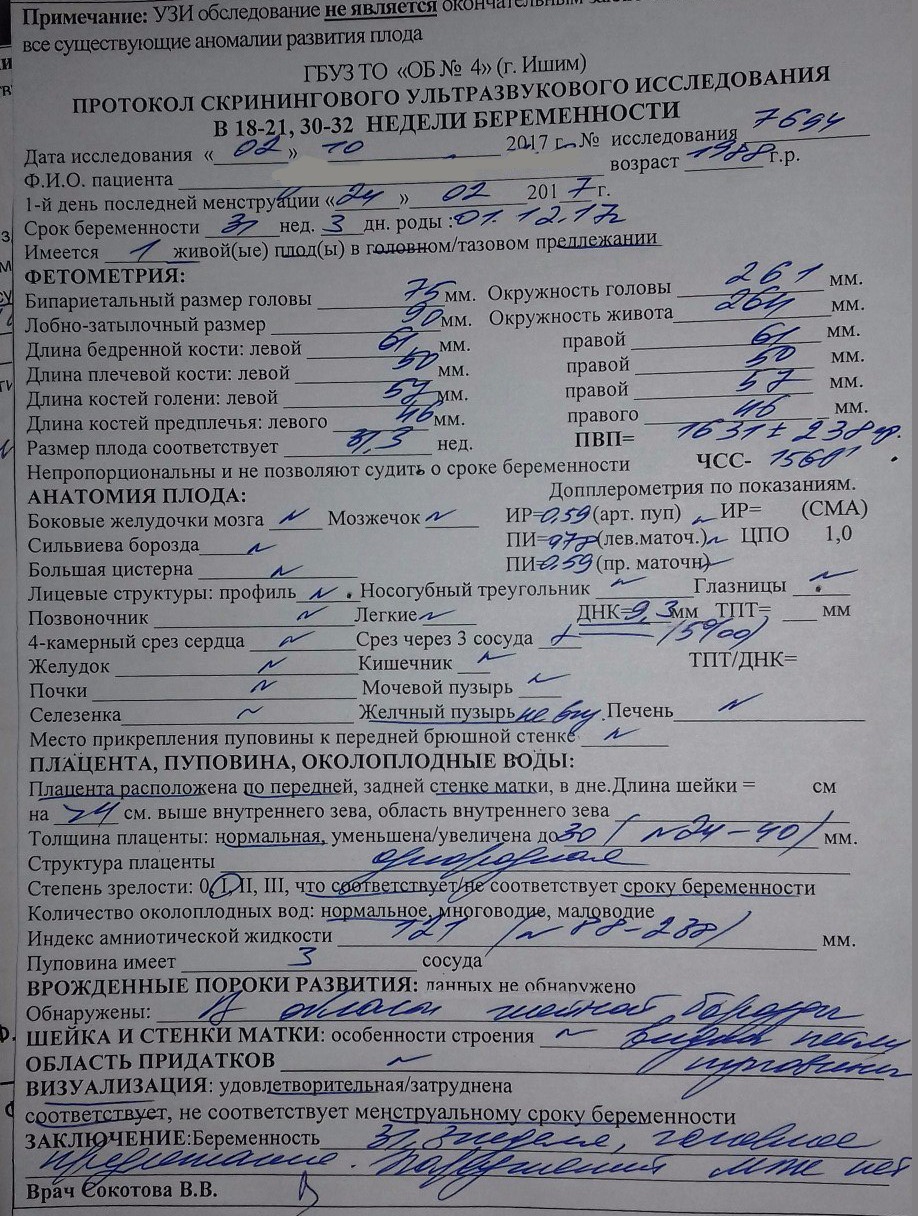 Примечание: УЗИ обследование не является окончательным
все существующие аномалии развития плода
ГБУЗ ТО «ОБ № 4» (г. Ишим)
ПРОТОКОЛ СКРИНИНГОВОГО УЛЬТРАЗВУКОВОГО ИССЛЕДОВАНИЯ
В 18-21, 30-32 НЕДЕЛИ БЕРЕМЕННОСТИ
Дата исследования « 02 » 10 2017 г. № исследования 7694
Ф.И.О. пациента возраст 1988 г.р.
1-й день последней менструации « 24 » 02 2017 г.
Срок беременности 31 нед. 3 дн. роды : 01.12.17г
Имеется 1 живой(ые) плод(ы) в головном/тазовом предлежании
ФЕТОМЕТРИЯ:
Бипариетальный размер головы 75 мм. Окружность головы 261 мм.
Лобно-затылочный размер 90 мм. Окружность живота 264 мм.
Длина бедренной кости: левой 61 мм. правой 61 мм.
Длина плечевой кости: левой 50 мм. правой 50 мм.
Длина костей голени: левой 57 мм. правой 57 мм.
Длина костей предплечья: левого 46 мм. правого 46 мм.
Размер плода соответствует 31,3 нед. ПВП= 1631 ± 238 гр.
Непропорциональны и не позволяют судить о сроке беременности ЧСС- 156
АНАТОМИЯ ПЛОДА: Допплерометрия по показаниям.
Боковые желудочки мозга N Мозжечок N ИР=0,59 (арт. пуп) N ИР= (СМА)
Сильвиева борозда N ПИ= (лев.маточ.) N ЦПО 1,0
Большая цистерна N ПИ=0.59 (пр. маточн)
Лицевые структуры: профиль N . Носогубный треугольник N Глазницы N
Позвоночник N Легкие N ДНК=9,3мм ТПТ= мм
4-камерный срез сердца N Срез через 3 сосуда
Желудок N Кишечник N ТПТ/ДНК=
Почки N Мочевой пузырь N
Селезенка N Желчный пузырь не . Печень N
Место прикрепления пуповины к передней брюшной стенке N
ПЛАЦЕНТА, ПУПОВИНА, ОКОЛОПЛОДНЫЕ ВОДЫ:
Плацента расположена по передней, задней стенке матки, в дне.Длина шейки = см
на см. выше внутреннего зева, область внутреннего зева
Толщина плаценты: нормальная, уменьшена/увеличена до 30 ( N 24-40) мм.
Структура плаценты однородная
Степень зрелости: 0, I, II, III, что соответствует/не соответствует сроку беременности
Количество околоплодных вод: нормальное, многоводие, маловодие
Индекс амниотической жидкости 121 (N 88-238) мм.
Пуповина имеет 3 сосуда
ВРОЖДЕННЫЕ ПОРОКИ РАЗВИТИЯ: данных не обнаружено
Обнаружены: В области шейной борозды
ШЕЙКА И СТЕНКИ МАТКИ: особенности строения N видна петля
ОБЛАСТЬ ПРИДАТКОВ N пуповины
ВИЗУАЛИЗАЦИЯ: удовлетворительная/затруднена
соответствует, не соответствует менструальному сроку беременности
ЗАКЛЮЧЕНИЕ:Беременность 31,3 неделя, головное
предлежание. Нарушений МПК нет
Врач Сокотова В.В.